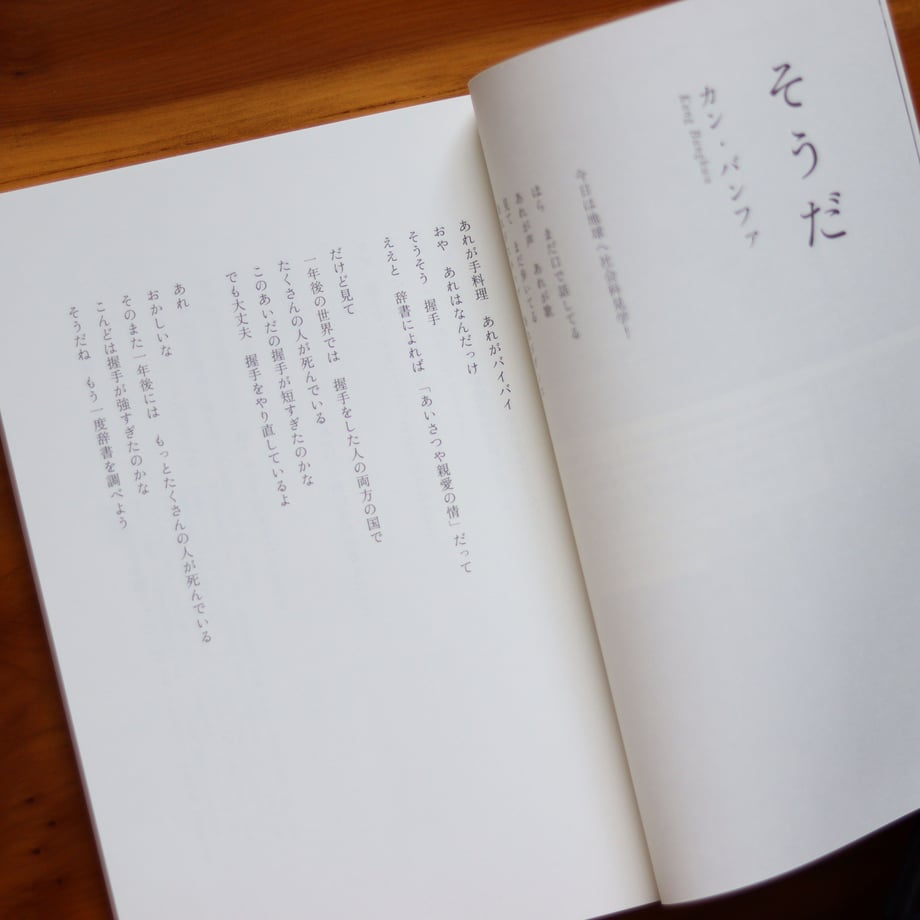 そうだ
カン・バンファ
Kang Banghwa
今日は地球へ社会科見学！
ほら　まだ口で話してる
あれが声　あれが歌
あれが手料理　あれがバイバイ
おや　あれはなんだっけ
そうそう　握手
ええと　辞書によれば　「あいさつや親愛の情」だって
だけど見て
一年後の世界では　握手をした人の両方の国で
たくさんの人が死んでいる
このあいだの握手が短すぎたのかな
でも大丈夫　握手をやり直しているよ
あれ
おかしいな
そのまた一年後には　もっとたくさんの人が死んでいる
こんどは握手が強すぎたのかな
そうだね　もう一度辞書を調べよう